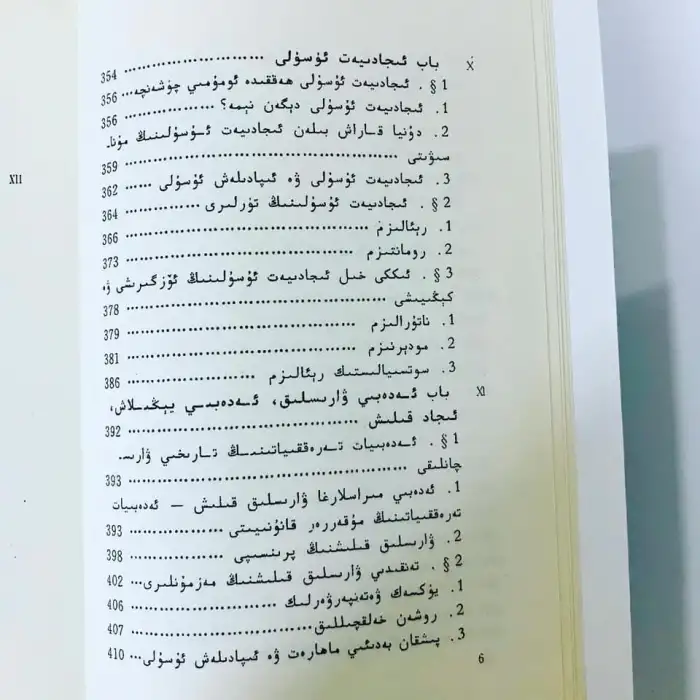 X باب ئىجادىيەت ئۇسۇلى ........................ 354
§ 1 . ئىجادىيەت ئۇسۇلى ھەققىدە ئومۇمىي چۈشەنچە... 356
1. ئىجادىيەت ئۇسۇلى دېگەن نېمە؟ ............... 356
2. دۇنيا قاراش بىلەن ئىجادىيەت ئۇسۇلىنىڭ مۇنا-
سىۋىتى ....................................... 359
3. ئىجادىيەت ئۇسۇلى ۋە ئىپادىلەش ئۇسۇلى ...... 362
§ 2 . ئىجادىيەت ئۇسۇلىنىڭ تۈرلىرى ............... 364
1. رېئالىزم .................................... 366
2. رومانتىزم .................................. 373
§ 3 . ئىككى خىل ئىجادىيەت ئۇسۇلىنىڭ ئۆزگىرىشى ۋە
كېڭىيىشى .................................... 378
1. ناتۇرالىزم .................................. 379
2. مودېرنىزم .................................. 381
3. سوتسىيالىستىك رېئالىزم .................... 386
XI باب ئەدەبىي ۋارىسلىق، ئەدەبىي يېڭىلاش،
ئىجاد قىلىش ................................ 392
§ 1 . ئەدەبىيات تەرەققىياتىنىڭ تارىخىي ۋارىس-
چانلىقى ..................................... 393
1. ئەدەبىي مىراسلارغا ۋارىسلىق قىلىش — ئەدەبىيات
تەرەققىياتىنىڭ مۇقەررەر قانۇنىيىتى ........... 393
2. ۋارىسلىق قىلىشنىڭ پرىنسىپى ................ 398
§ 2 . تەنقىدىي ۋارىسلىق قىلىشنىڭ مەزمۇنلىرى... 402
1. يۈكسەك ۋەتەنپەرۋەرلىك ..................... 406
2. روشەن خەلقچىللىق .......................... 407
3. پىشقان بەدىئىي ماھارەت ۋە ئىپادىلەش ئۇسۇلى... 410
6
XII